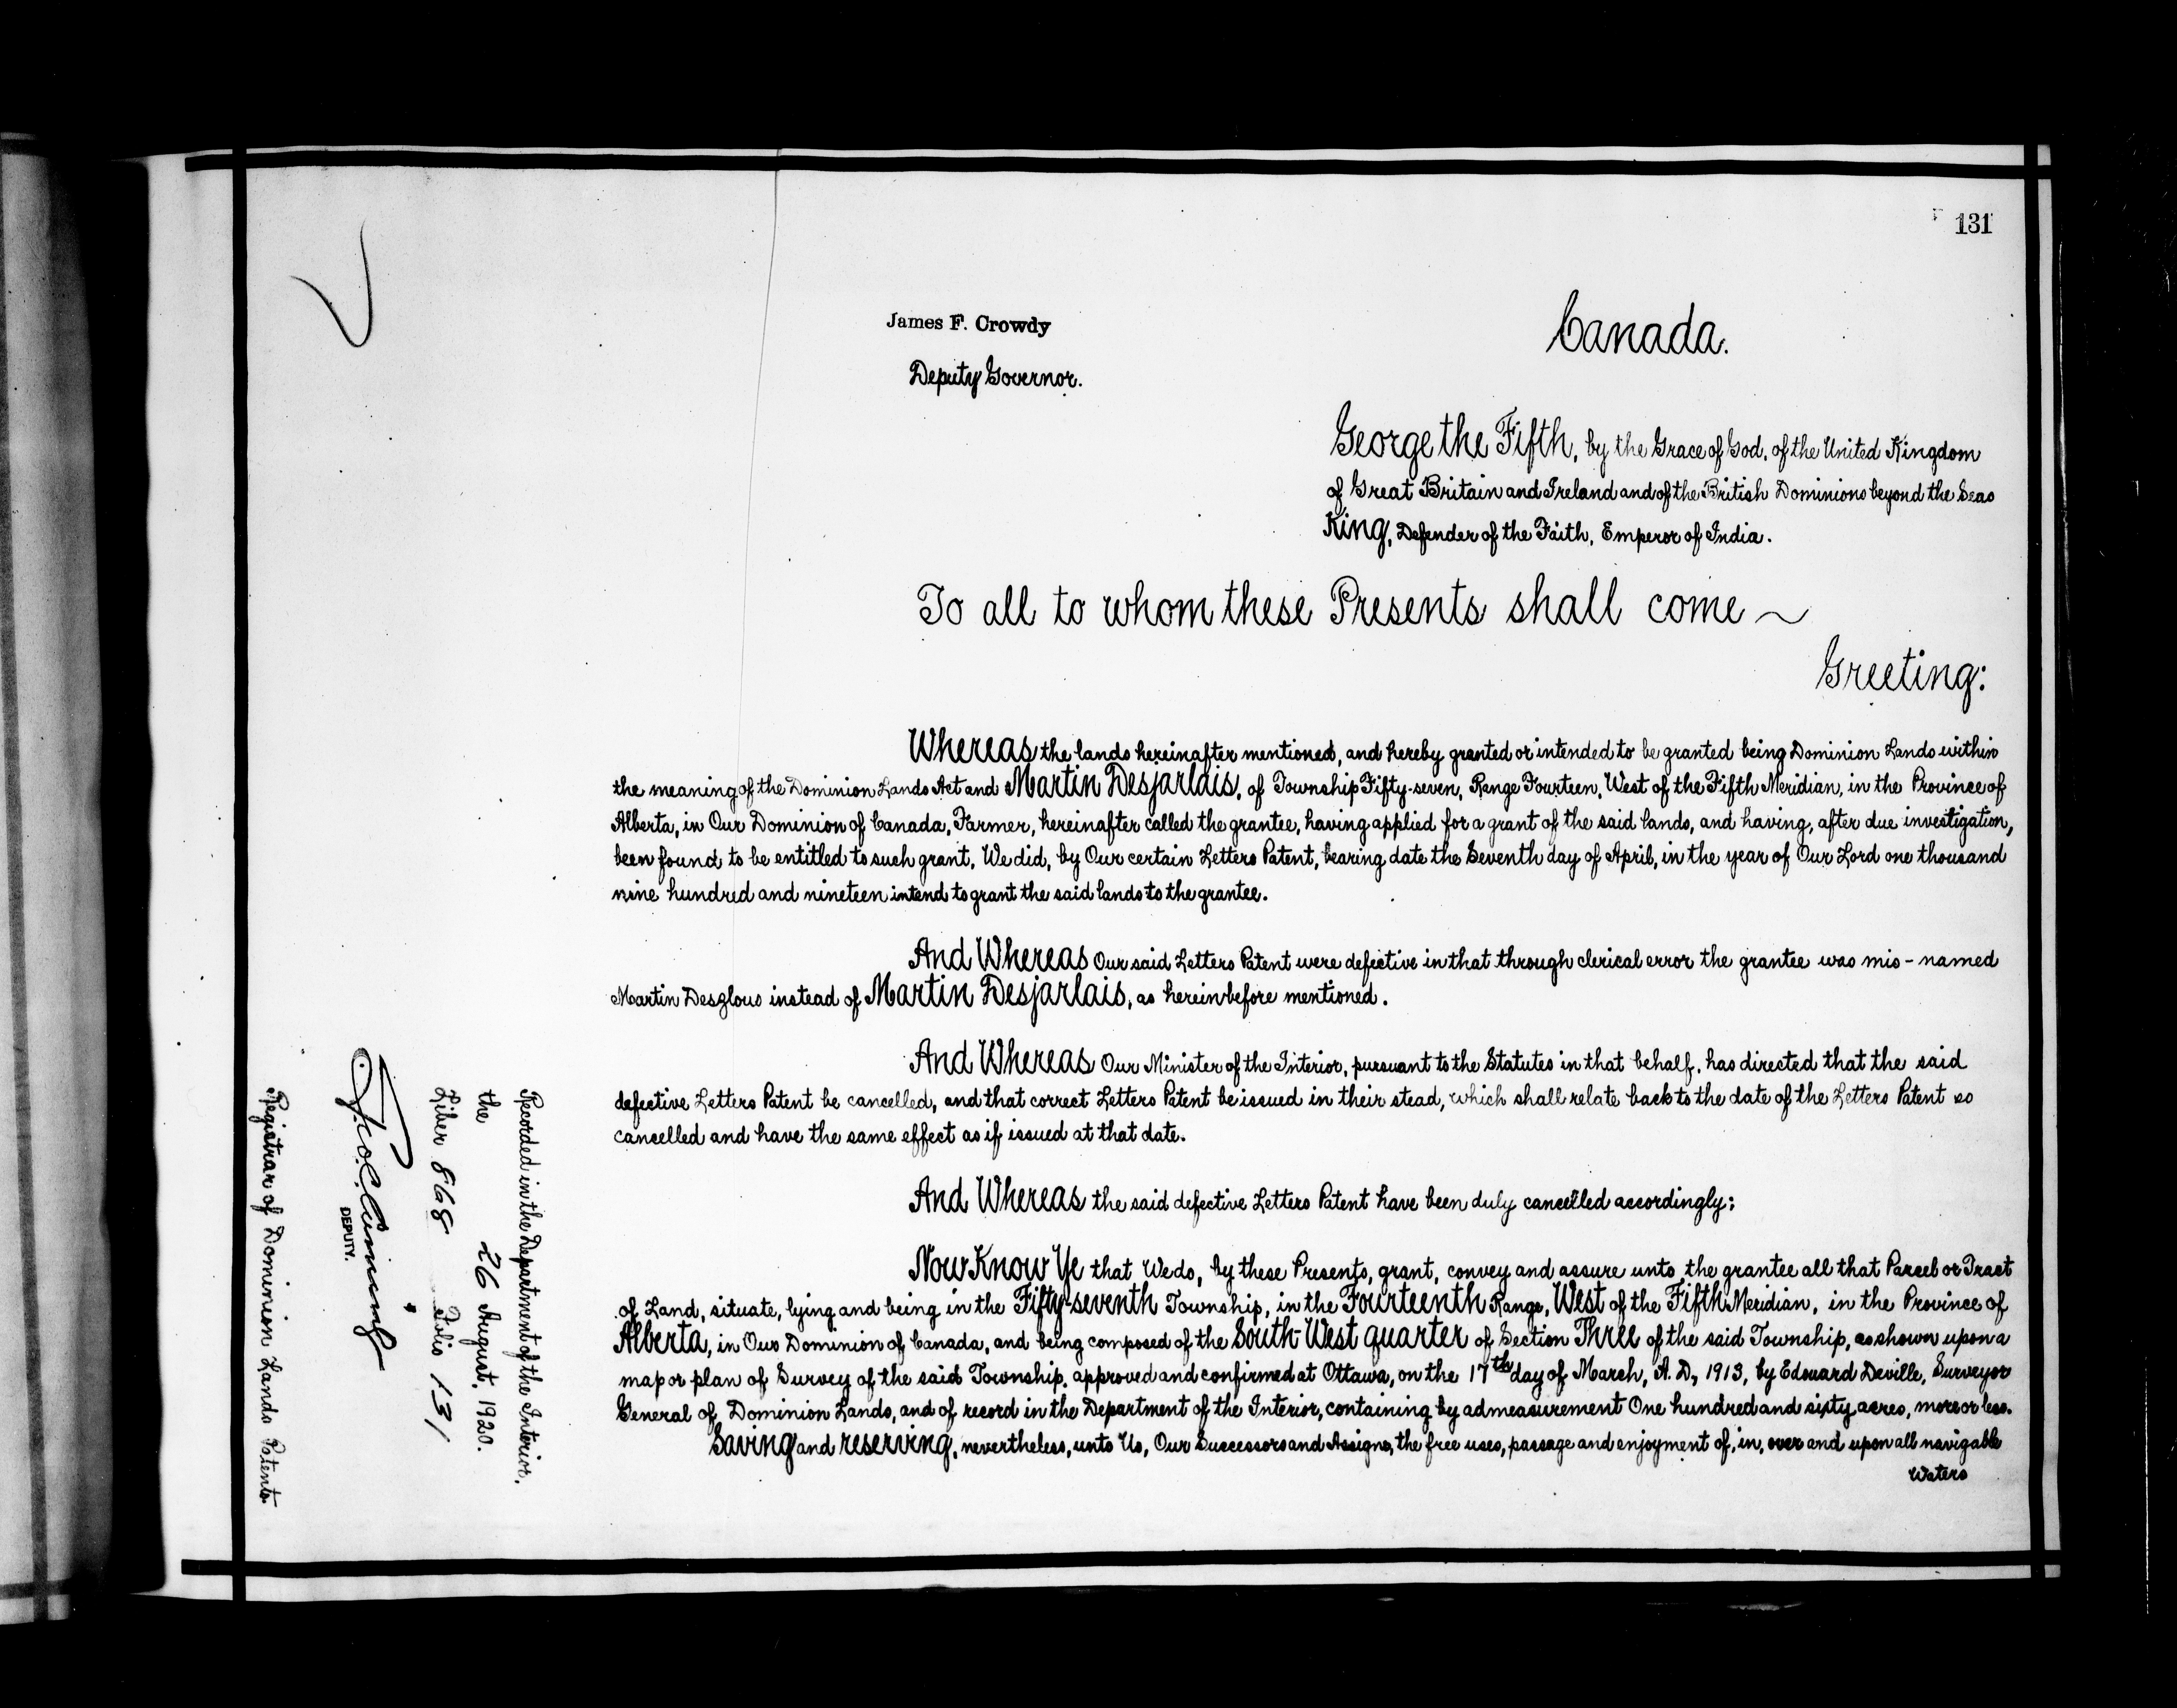 131
James F. Crowdy
Deputy Governor.
Canada.
George the Fifth, by the Grace of God, of the United Kingdom
of Great Britain and Ireland and of the British Dominions beyond the Seas
King, Defender of the Faith, Emperor of India.
To all to whom these Presents shall come ~
Greeting:
Whereas the lands hereinafter mentioned, and hereby granted or intended to be granted being Dominion Lands within
the meaning of the Dominion Lands Act and Martin Desjarlais, of Township Fifty-seven, Range Fourteen, West of the Fifth Meridian, in the Province of
Alberta, in Our Dominion of Canada, Farmer, hereinafter called the grantee, having applied for a grant of the said lands, and having, after due investigation,
been found to be entitled to such grant, We did, by Our certain Letters Patent, bearing date the Seventh day of April, in the year of Our Lord one thousand
nine hundred and nineteen intend to grant the said lands to the grantee.
And Whereas Our said Letters Patent were defective in that through clerical error the grantee was mis-named
Martin Desglous instead of Martin Desjarlais, as hereinbefore mentioned.
And Whereas Our Minister of the Interior, pursuant to the Statutes in that behalf, has directed that the said
defective Letters Patent be cancelled, and that correct Letters Patent be issued in their stead, which shall relate back to the date of the Letters Patent so
cancelled and have the same effect as if issued at that date.
And Whereas the said defective Letters Patent have been duly cancelled accordingly:
Now Know Ye that We do, by these Presents, grant, convey and assure unto the grantee all that Parcel or Tract
of Land, situate, lying and being in the Fifty-seventh Township, in the Fourteenth Range, West of the Fifth Meridian, in the Province of
Alberta, in Our Dominion of Canada, and being composed of the South-West quarter of Section Three of the said Township, as shown upon a
map or plan of Survey of the said Township, approved and confirmed at Ottawa, on the 17th day of March, A.D., 1913, by Edouard Deville, Surveyor
General of Dominion Lands, and of record in the Department of the Interior, containing by admeasurement One hundred and sixty acres, more or less.
Saving and reserving, nevertheless, unto Us, Our Successors and Assigns, the free uses, passage and enjoyment of, in, over and upon all navigable
Waters
Recorded in the Department of the Interior,
the 26 August, 1920.
Liber 868 Folio 131
DEPUTY.
Registrar of Dominion Lands Patents.